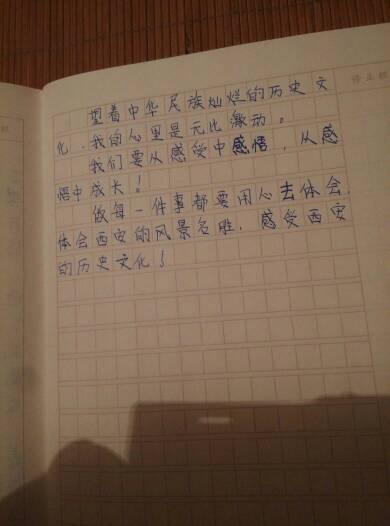 望着中华民族灿烂的历史文
化，我的心里是元比激动。
我们要从感受中感悟，从感
悟中成长！
做每一件事都要用心去体会，
体会西安的风景名胜，感受西安
的历史文化！